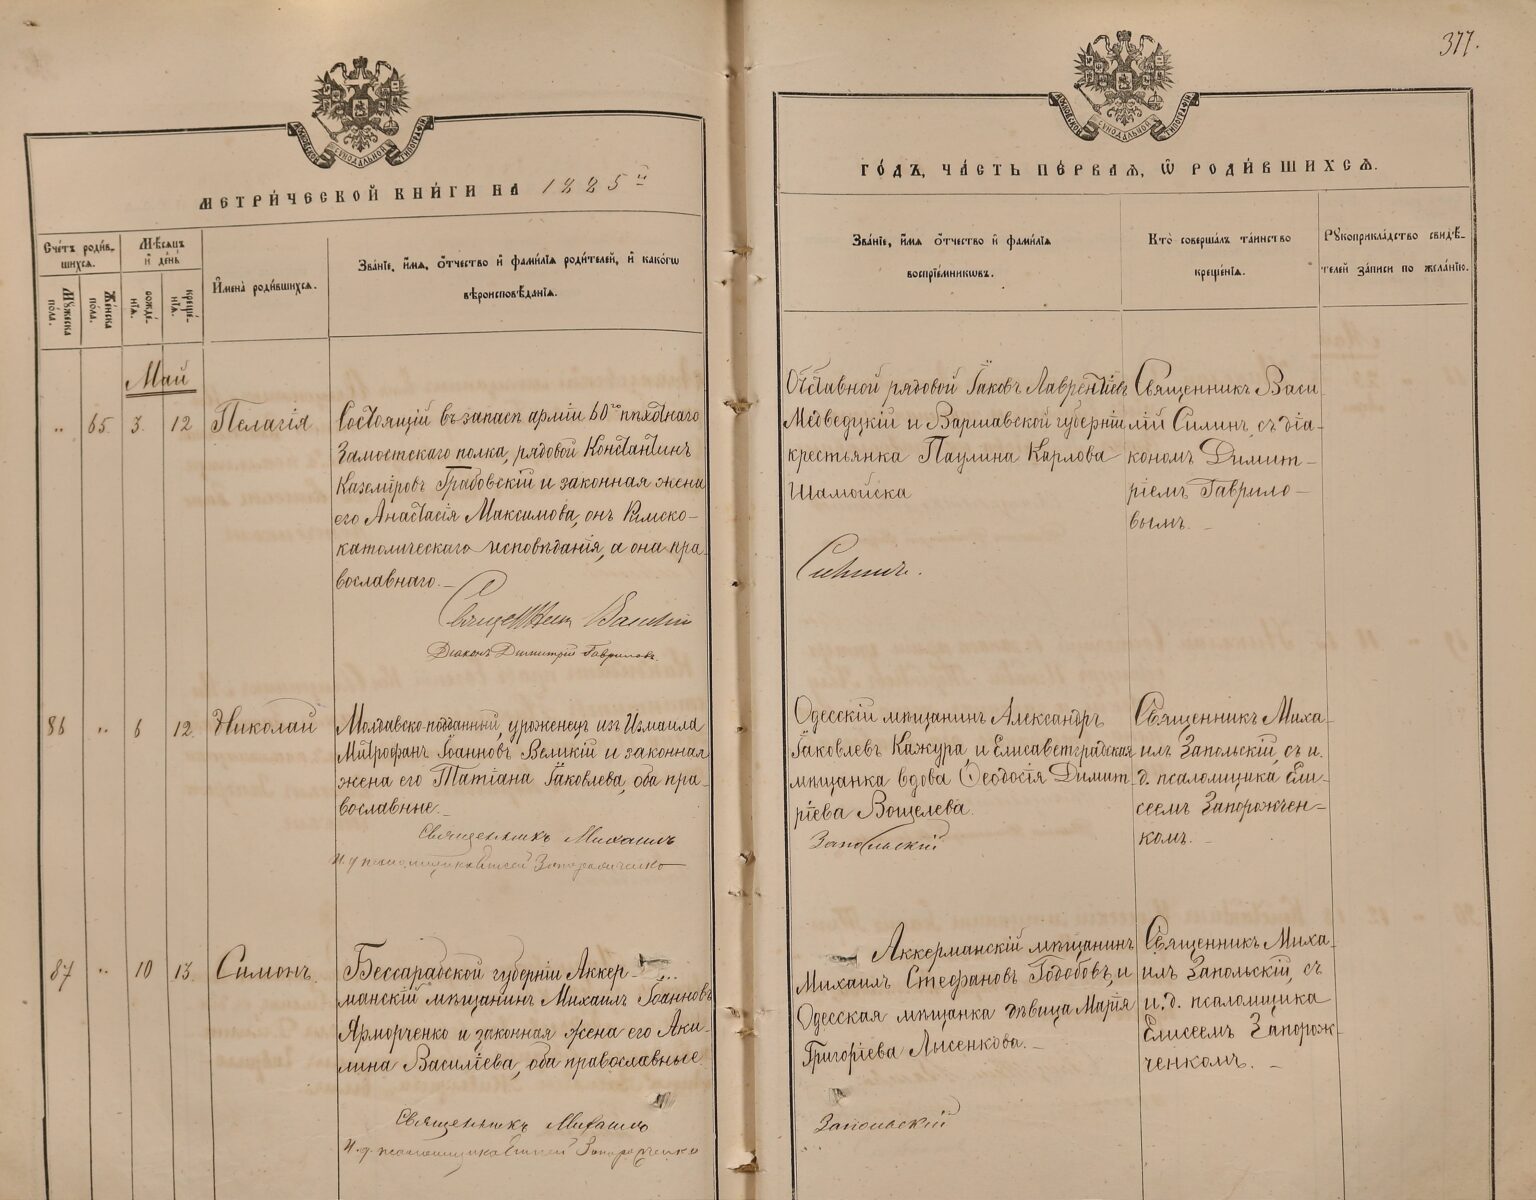 377.
МОСКОВСКОЙ СѴНОДАЛЬНОЙ ТИПОГРАФІИ
МОСКОВСКОЙ СѴНОДАЛЬНОЙ ТИПОГРАФІИ
МЕТРИ́ЧЕСКОЙ КНИ́ГИ НА 1885й
ГО́ДЪ, ЧА́СТЬ ПЕ́РВАЯ, Ѽ РОДИ́ВШИХСЯ.
Сче́тъ роди́в-
шихся.
Мѣ́сяцъ
и҆ де́нь
И҆мена̀ роди́вшихся.
Зва́нїе, и҆́мя, ѻ҆́тчество и҆ фами́лїѧ роди́телей, и҆ како́гѡ
вѣроисповѣ́данїѧ.
Му́жеска
по́ла.
Же́нска
по́ла.
рожде́-
нїѧ.
креще́-
нїѧ.
Зва́нїе, и҆́мя ѻ҆́тчество и҆ фами́лїѧ
воспрїе́мникѡвъ.
Кто̀ соверша́лъ та́инство
креще́нїѧ.
Рꙋкоприкла́дство свидѣ́-
телей за́писи по жела́нїю.
Май
„ 65. 3. 12 Пелагія
Состоящій въ запасѣ арміи 60го пѣхотнаго
Замостскаго полка, рядовой Константинъ
Каземіровъ Грабовскій и законная жена
его Анастасія Максимова, онъ Римско-
католическаго исповѣданія, а она пра-
вославнаго.
Священникъ Василій
Діаконъ Димитрій Гавриловъ.
Отставной рядовой Іаковъ Лаврентіевъ
Медведуцкій и Варшавской губерніи
крестьянка Паулина Карлова
Шамойска
Силинъ.
Священникъ Васи
лій Силинъ, съ діа-
кономъ Димит-
ріемъ Гаврило-
вымъ.
86 „ 6 12 Николай
Молдавско-подданный, уроженецъ изъ Измаила
Митрофанъ Іоанновъ Великій и законная
жена его Татіана Іаковлева, оба пра-
вославные.
Священникъ Михаилъ
И. д. псаломщика Елисей Запорожченко
Одесскій мѣщанинъ Александръ
Іаковлевъ Кажура и Елисаветградская
мѣщанка вдова Ѳеодосія Димит-
ріева Вощелева.
Запольскій
Священникъ Миха-
илъ Запольскій, съ и.
д. псаломщика Ели-
сеемъ Запорожчен-
комъ.
87 „ 10 13. Симонъ.
Бессарабской губерніи Аккер-
манскій мѣщанинъ Михаилъ Іоанновъ
Ярморченко и законная жена его Аки-
лина Василіева, оба православные.
Священникъ Михаилъ
И. д. псаломщика Елисей Запорожченко
Аккерманскій мѣщанинъ
Михаилъ Стефановъ Годобовъ, и
Одесская мѣщанка дѣвица Марія
Григоріева Лысенкова.
Запольскій
Священникъ Миха-
илъ Запольскій, съ
и. д. псаломщика
Елисеемъ Запорож-
ченкомъ.